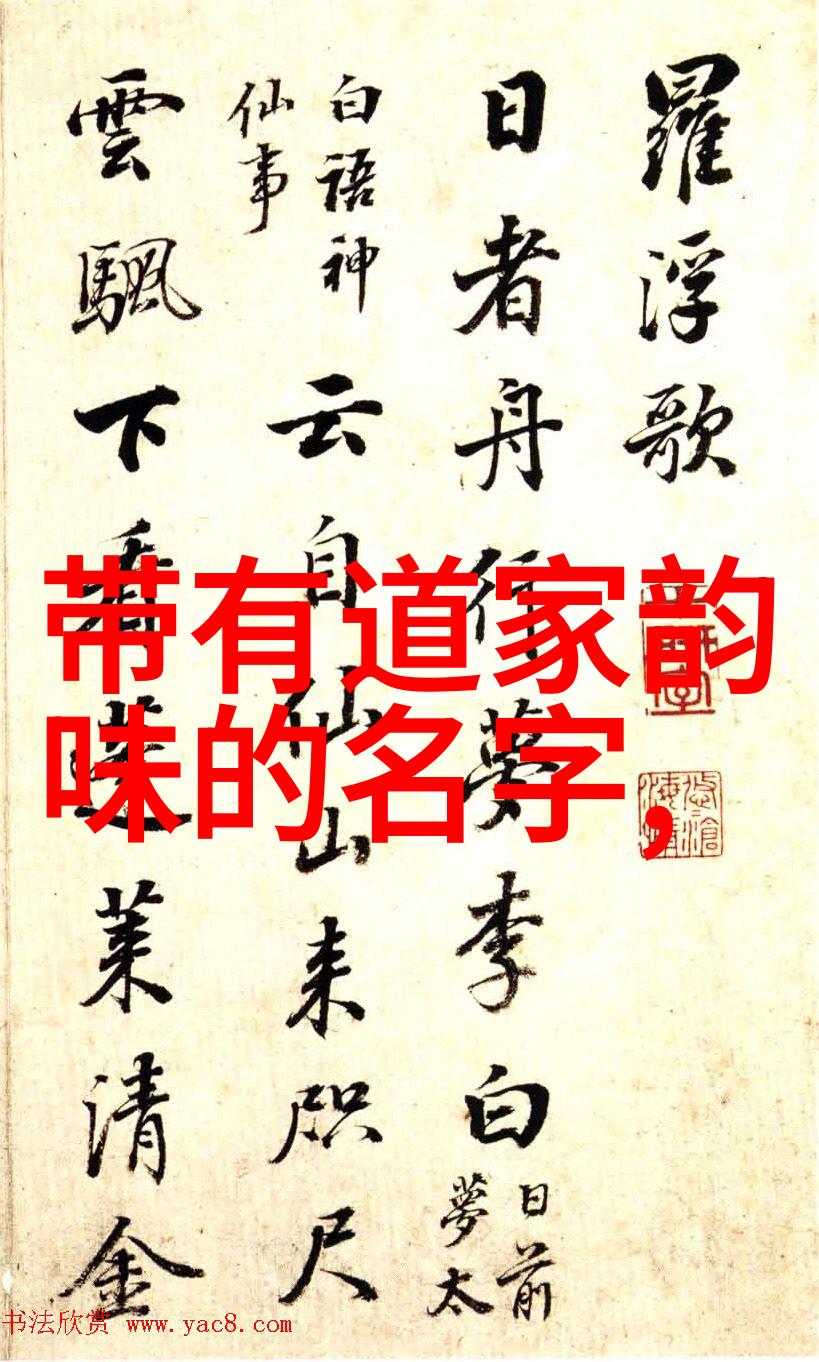 羅浮歌
日者舟行夢李白
日前
夢太
白語神
仙事
云自仙山来咫尺
雲颿下看蓬萊清金
带有道家韵
味的名字,
书法欣赏 www.yac8.com